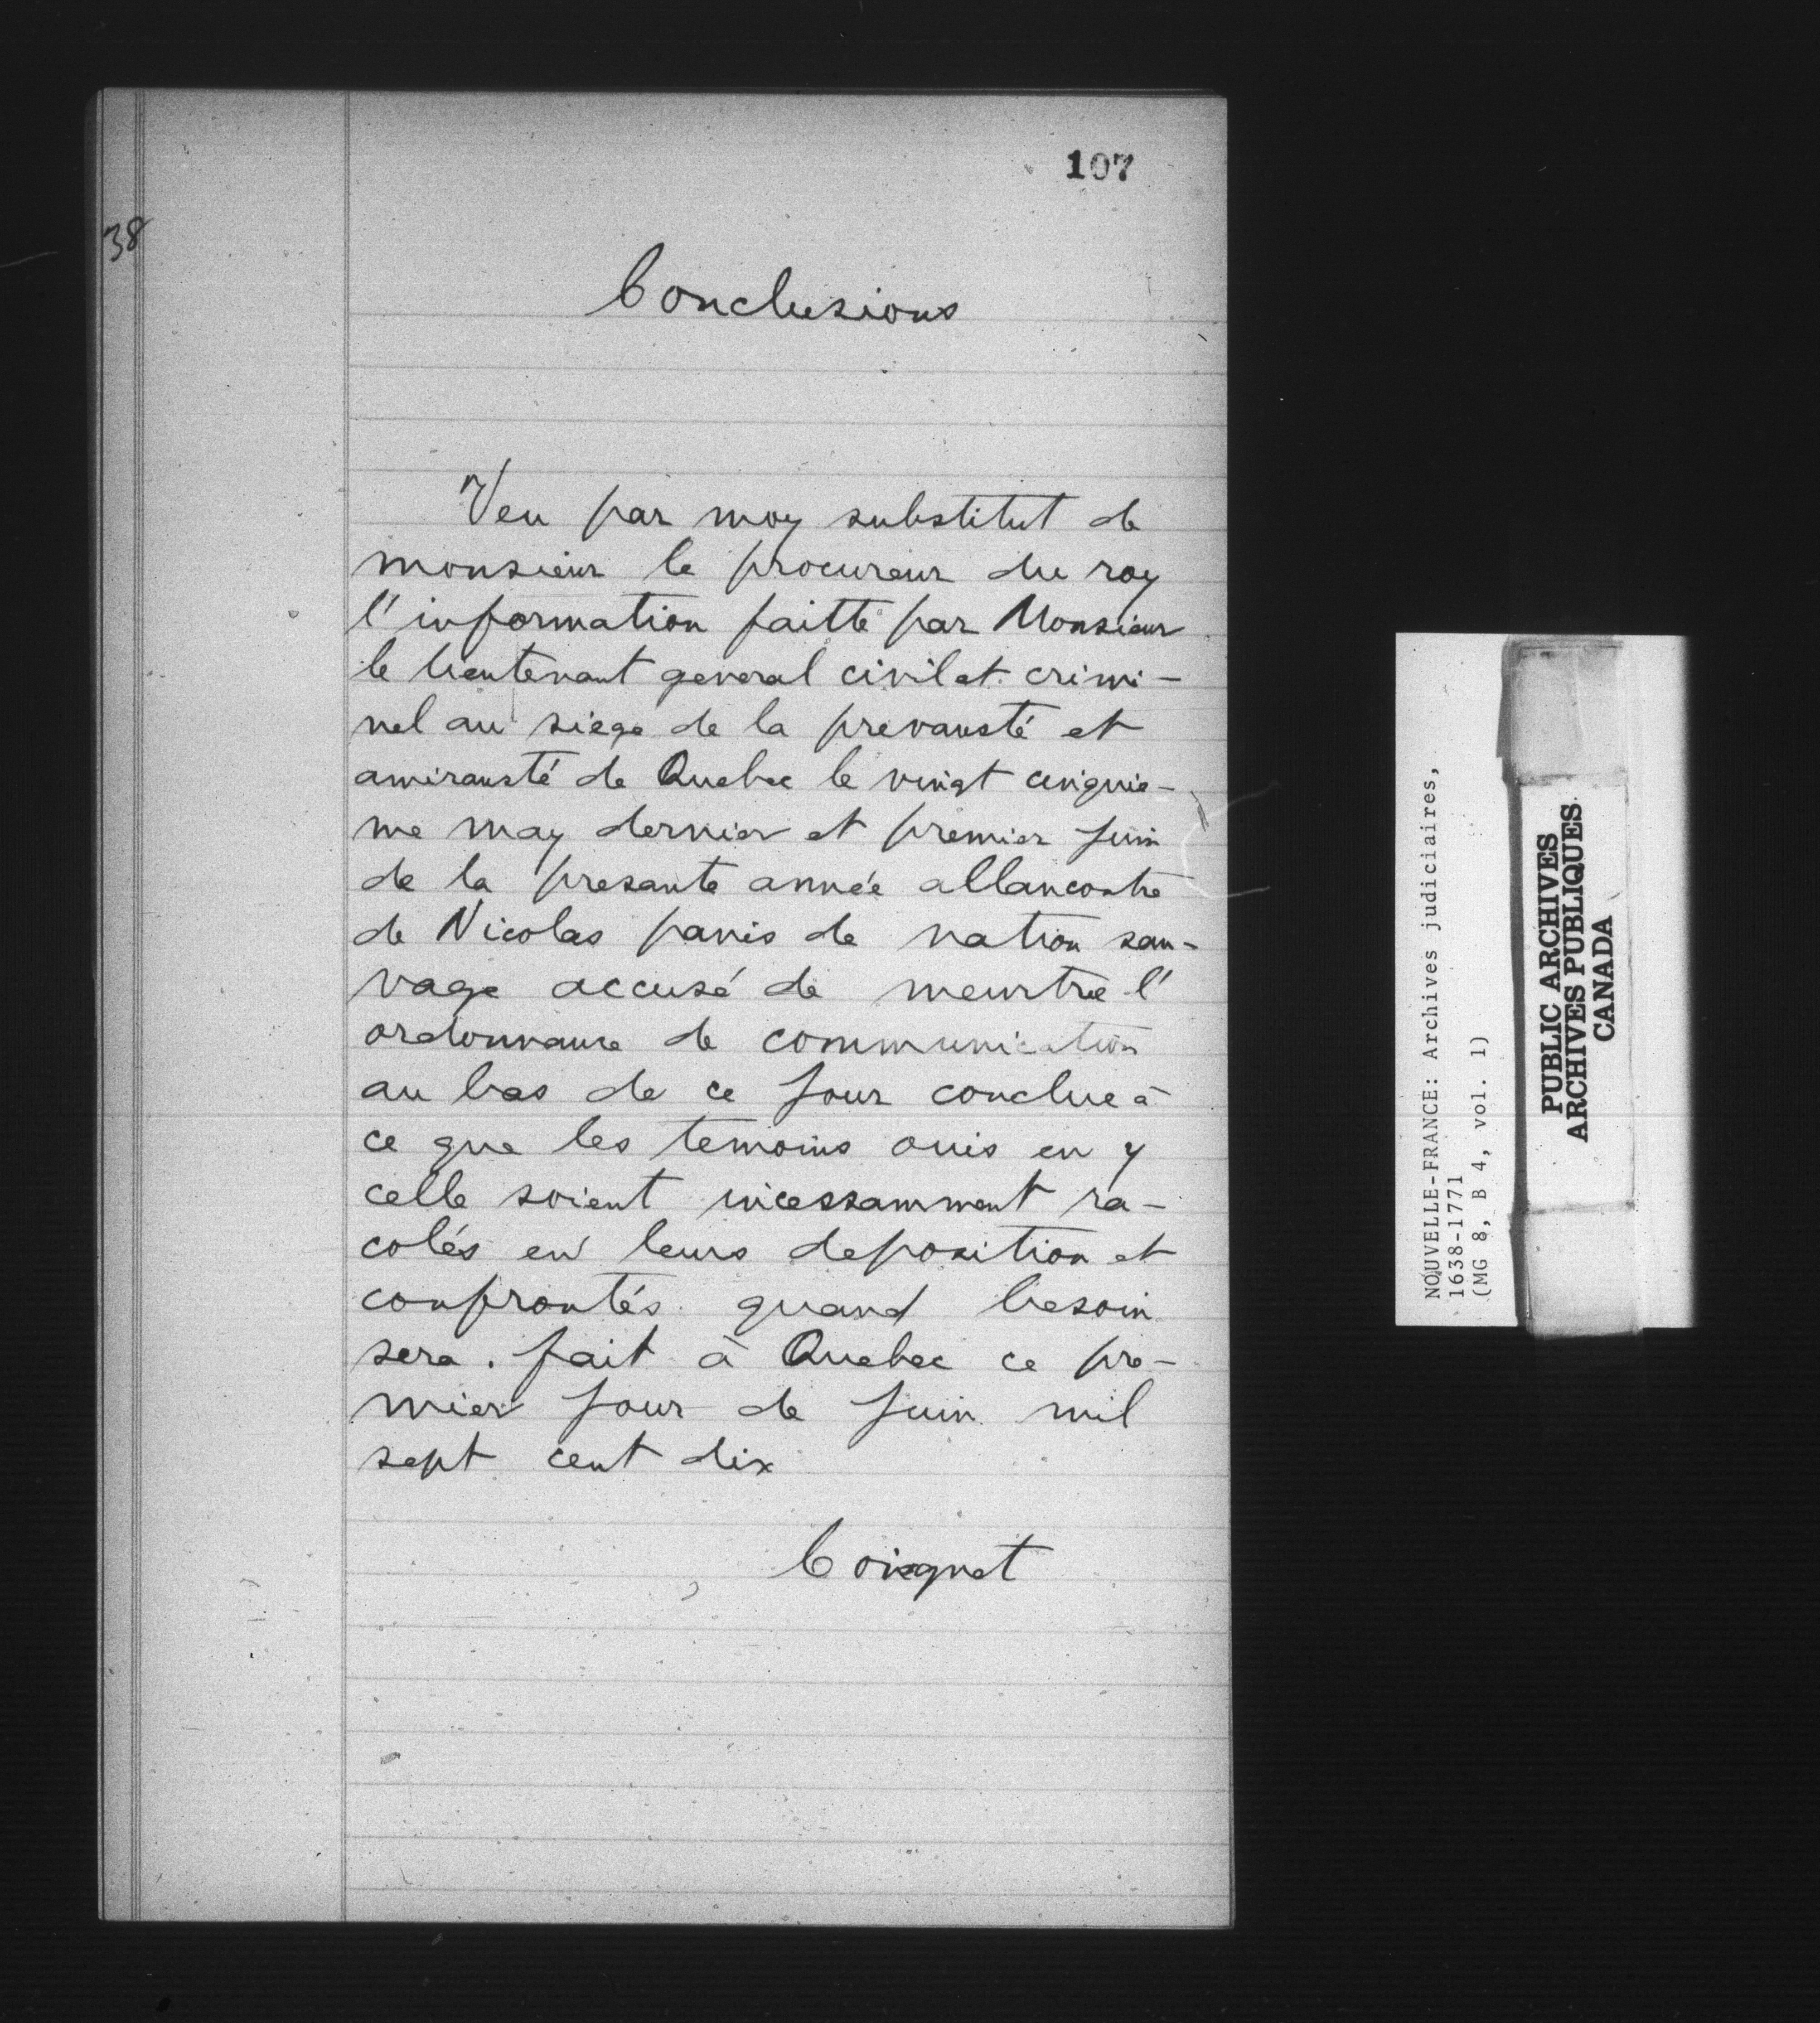 107
38
Conclusions
Veu par moy substitut de
monsieur le procureur du roy
l'information faitte par Monsieur
le lieutenant general civil et crimi-
nel au siege de la prevausté et
amirausté de Quebec le vingt cinquie-
me may dernier et premier juin
de la presante année allancontre
de Nicolas panis de nation sau-
vage accusé de meurtre l'
ordonnance de communication
au bas de ce jour conclue à
ce que les temoins ouis en y
celle soient incessamment ra-
colés en leurs deposition et
confrontés quand besoin
sera. fait à Quebec ce pre-
mier jour de juin mil
sept cent dix
Coignet
NOUVELLE-FRANCE: Archives judiciaires,
1638-1771
(MG 8, B 4, vol. 1)
PUBLIC ARCHIVES
ARCHIVES PUBLIQUES
CANADA